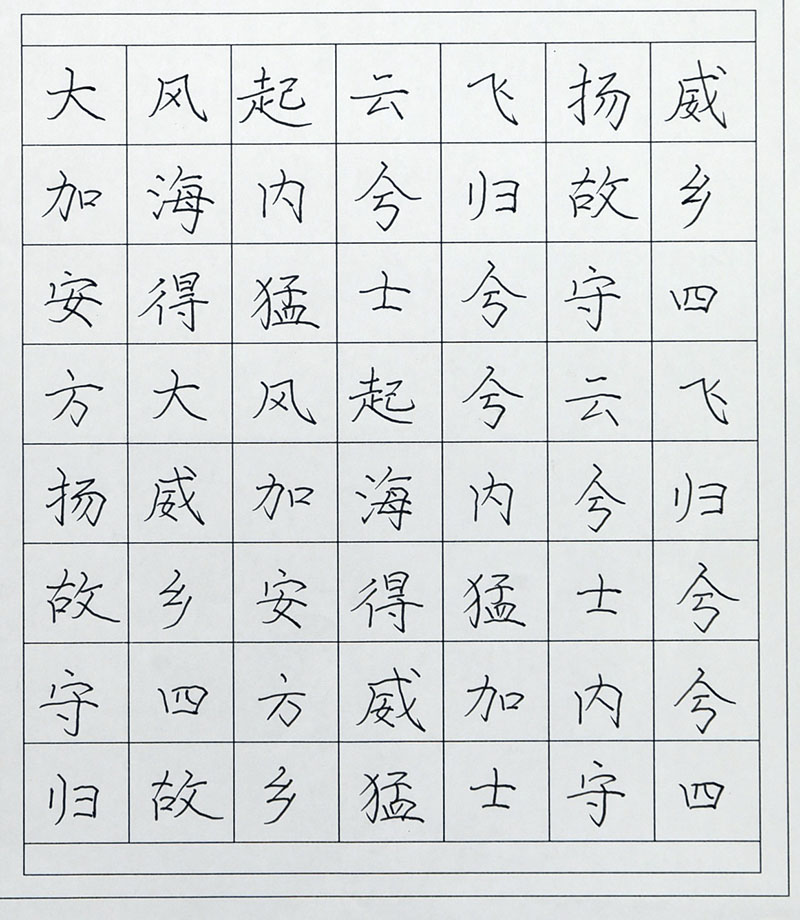 大风起云飞扬威
加海内兮归故乡
安得猛士兮守四
方大风起兮云飞
扬威加海内兮归
故乡安得猛士兮
守四方威加内兮
归故乡猛士守四